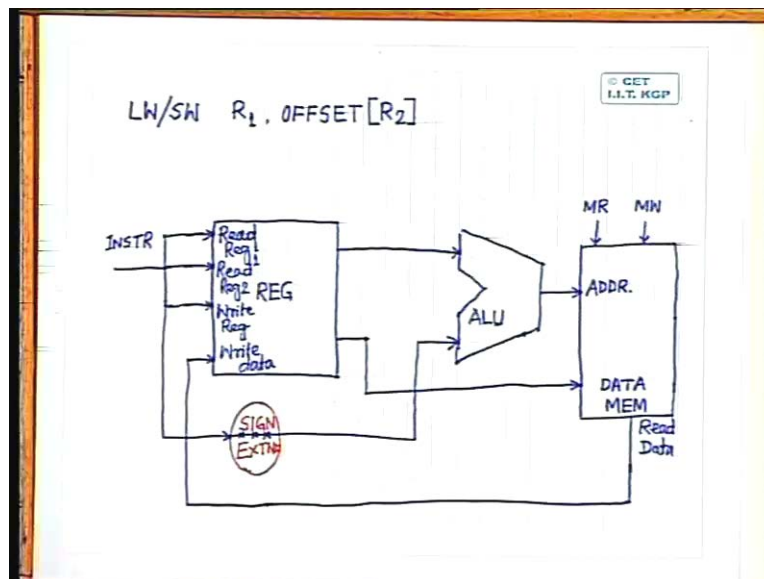 © CET
I.I.T. KGP
LW/SW R1, OFFSET[R2]
MR MW
INSTR
Read
Reg1
Read
Reg2
REG
Write
Reg
Write
data
ALU
ADDR.
DATA
MEM
Read
Data
SIGN
EXTN